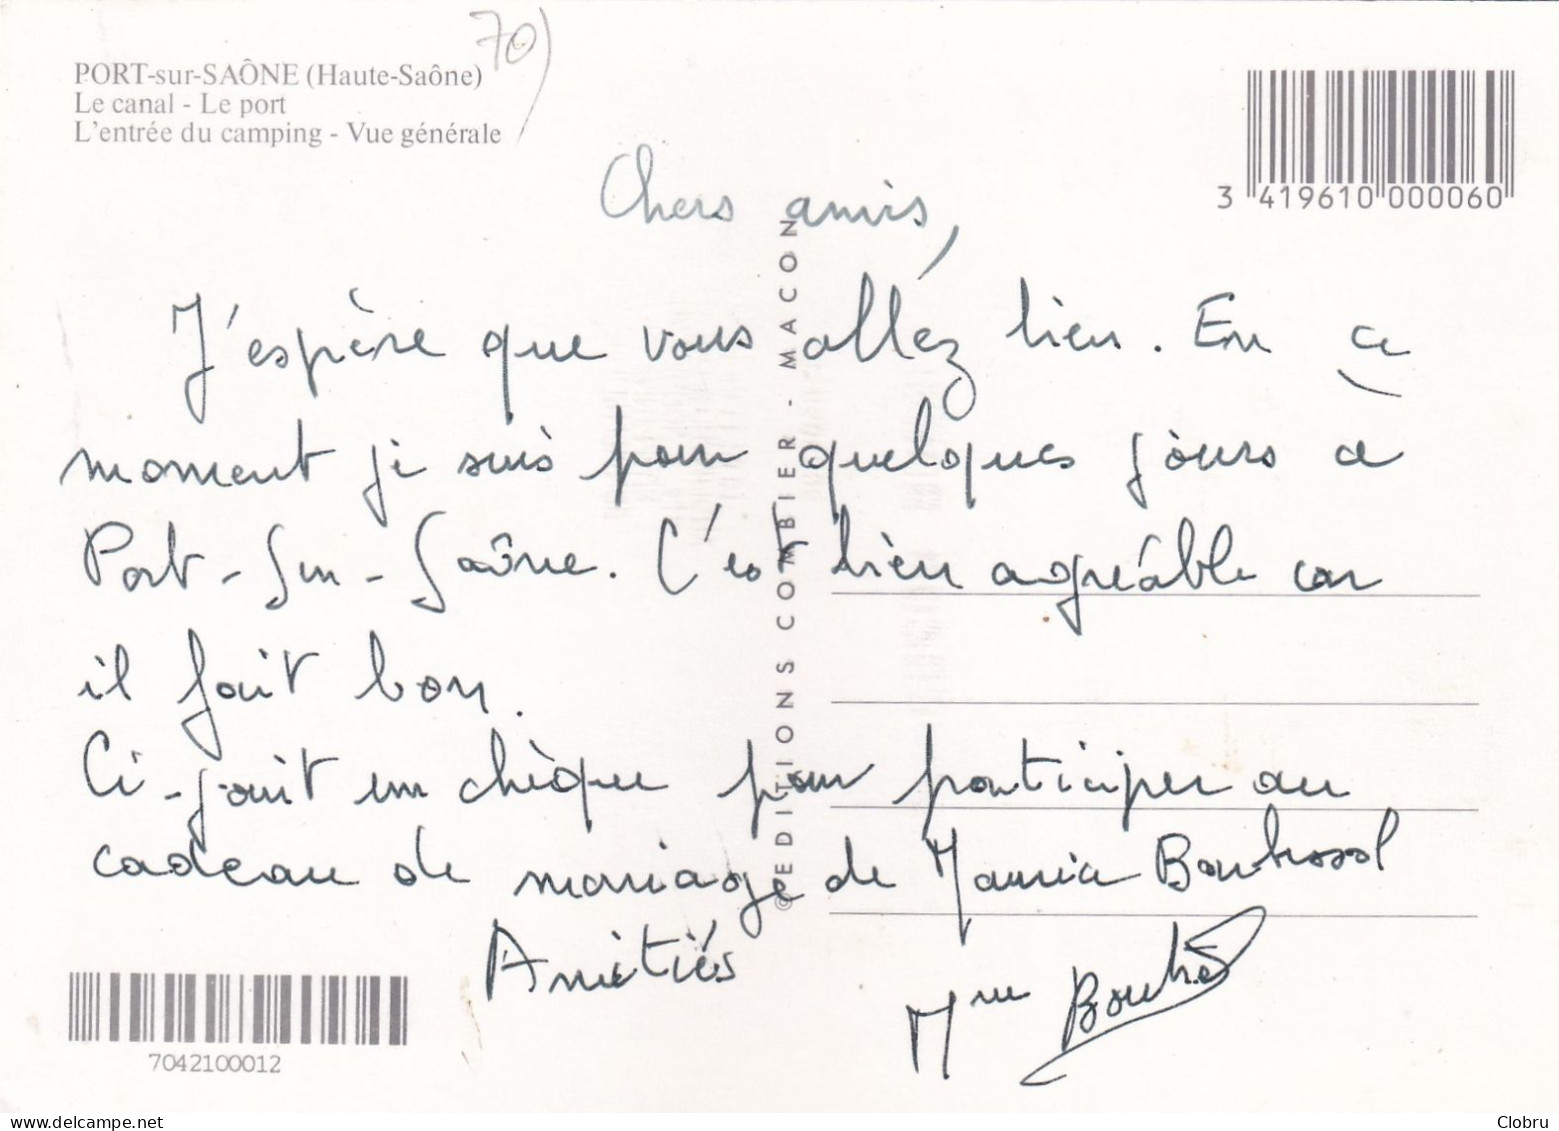 70)
PORT-sur-SAÔNE (Haute-Saône)
Le canal - Le port
L'entrée du camping - Vue générale
3 419610 000060
Chers amis,
J'espère que vous allez bien. En ce
moment je suis pour quelques jours à
Port-Sur-Saône. C'est bien agréable car
il fait bon.
Ci-joint un chèque pour participer au
cadeau de mariage de
Amitiés
Mme
© EDITIONS COMBIER - MACON
7042100012
Clobru